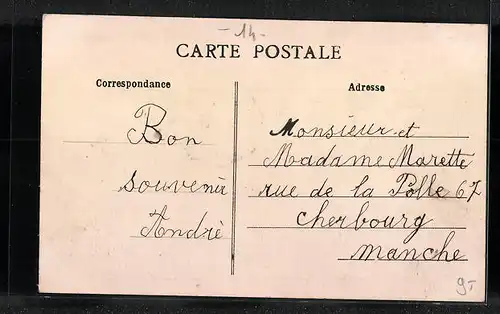 - 14 -
CARTE POSTALE
Correspondance
Adresse
Bon
souvenir
André
Monsieur et
Madame Marette
rue de la Polle 67
Cherbourg
Manche